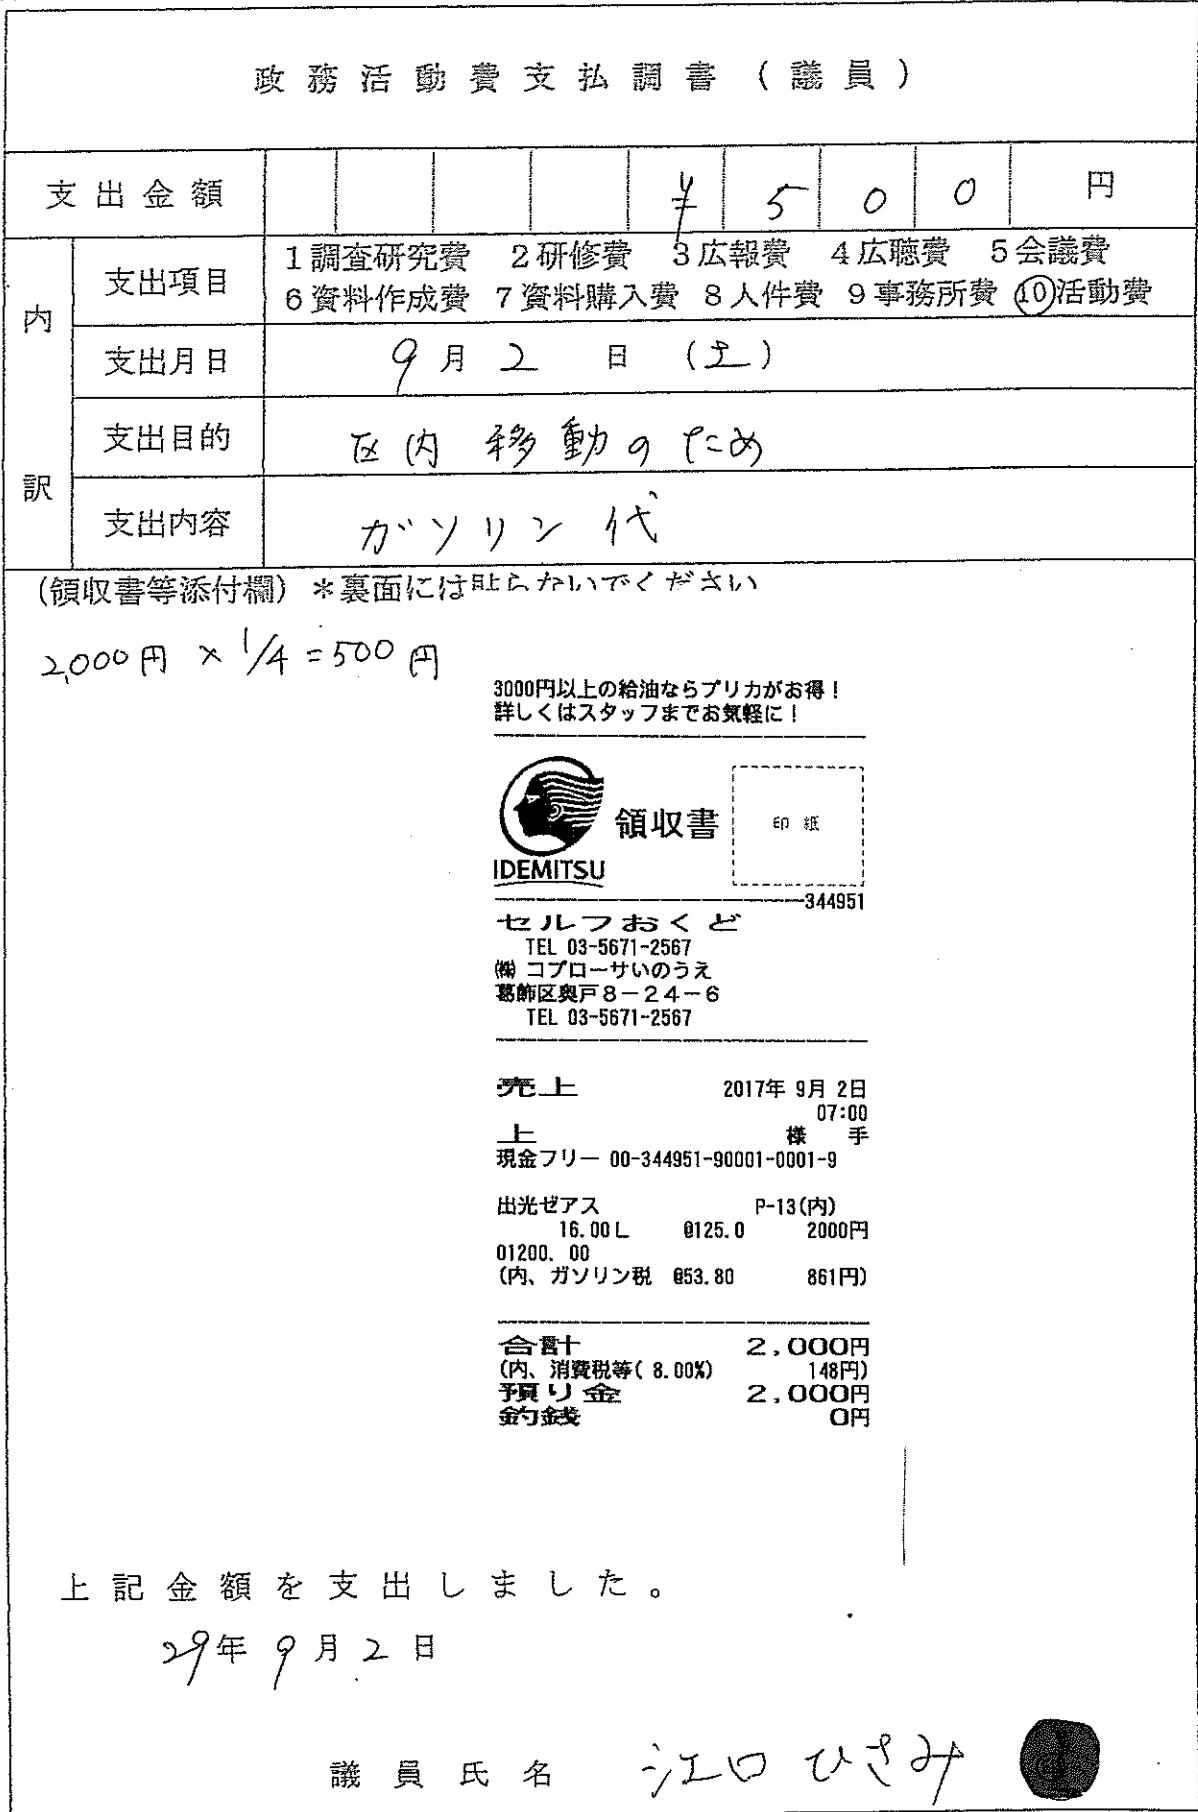 政務活動費支払調書(議員)
支出金額 ¥500円
内訳
支出項目 1調査研究費 2研修費 3広報費 4広聴費 5会議費
6資料作成費 7資料購入費 8人件費 9事務所費 ⑩活動費
支出月日 9月2日(土)
支出目的 区内移動のため
支出内容 ガソリン代
(領収書等添付欄)*裏面には貼らないでください
2,000円×1/4=500円
3000円以上の給油ならプリカがお得!
詳しくはスタッフまでお気軽に!
領収書 印紙
IDEMITSU
344951
セルフおくど
TEL 03-5671-2567
㈱ コプローサいのうえ
葛飾区奥戸8-24-6
TEL 03-5671-2567
売上 2017年 9月 2日
07:00
上 様 手
現金フリー 00-344951-90001-0001-9
出光ゼアス P-13(内)
16.00L @125.0 2000円
01200. 00
(内、ガソリン税 @53.80 861円)
合計 2,000円
(内、消費税等( 8.00%) 148円)
預り金 2,000円
釣銭 0円
上記金額を支出しました。
29年9月2日
議員氏名 江口ひさみ